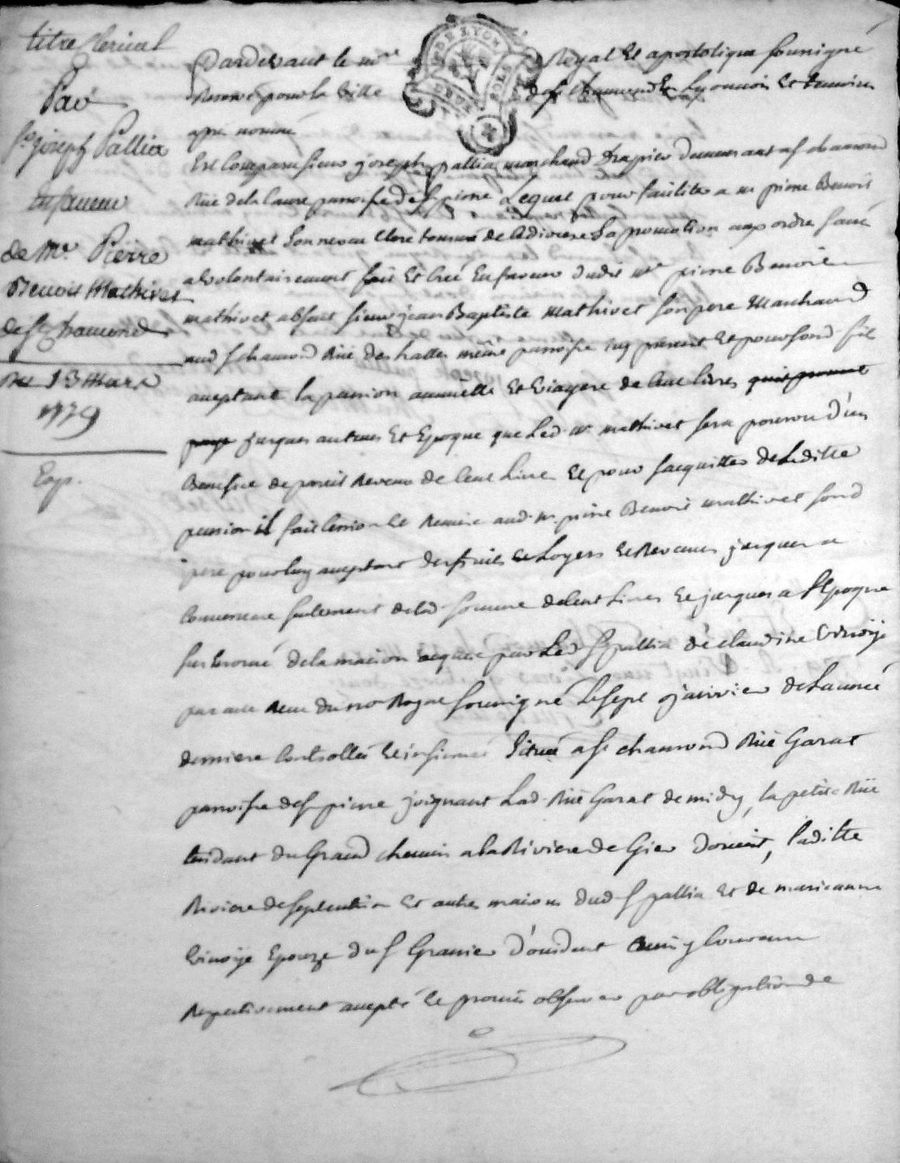 titre clerical
Par
Sr joseph Pallia
en faveur
de Mr. Pierre
Benoit Mathivet
de St. chamond
Du 13 mars
1779
Exp.
DE LYON
SOLS
Pardevant le nre Royal Et apostolique soussigné
Reservé pour la Ville de st chamond En Lyonnois Et temoins
apre nommé
Est Comparu sieur joseph pallia marchand drapier demeurant a st chamond
Rue de la Cure paroisse de st pierre Lequel pour faciliter a mr pierre Benoit
mathivet son neveu Clerc tonsuré de Ce diocese La promotion aux ordre sacré
a volontairement fait Et Creé En faveur dudit mr pierre Benoit
mathivet absent sieur jean Baptiste Mathivet son pere Marchand
aud st chamond Rue des halles même paroisse icy present Et pour sond fils
aceptant la pension annuelle Et Viagere de Cent livres
jusques au tems Et Epoque que Led. mr mathivet sera pourvu d'un
Benefice de pareil Revenu de Cent Livres Et pour sacquitter de Laditte
pension il fait Cession Et Remise aud. mr pierre Benoit mathivet sond
pere pour luy aceptant des fruits Et Loyers Et Revenus jusques a
Concurrence seulement de lad. somme de Cent Livres Et jusques a l'Epoque
sus Enoncé de la maison acquise par Led. st pallia de Claudine Virvoÿe
par acte Recu du nre Royal soussigné Le sept janvier de Lannée
derniere Controllée Et insinuée Située a st chamond Rüe Garat
paroisse de st pierre joignant Lad. Rüe Garat de midy, la petite Rüe
tendant du Grand chemin a la Riviere de Gier d'orient, laditte
Riviere de septentrion Et autres maisons dud. st pallia Et de marieanne
Virvoÿe Epouze du st Granier d'occident
Respectivement acepté Et promis observer par obligation de